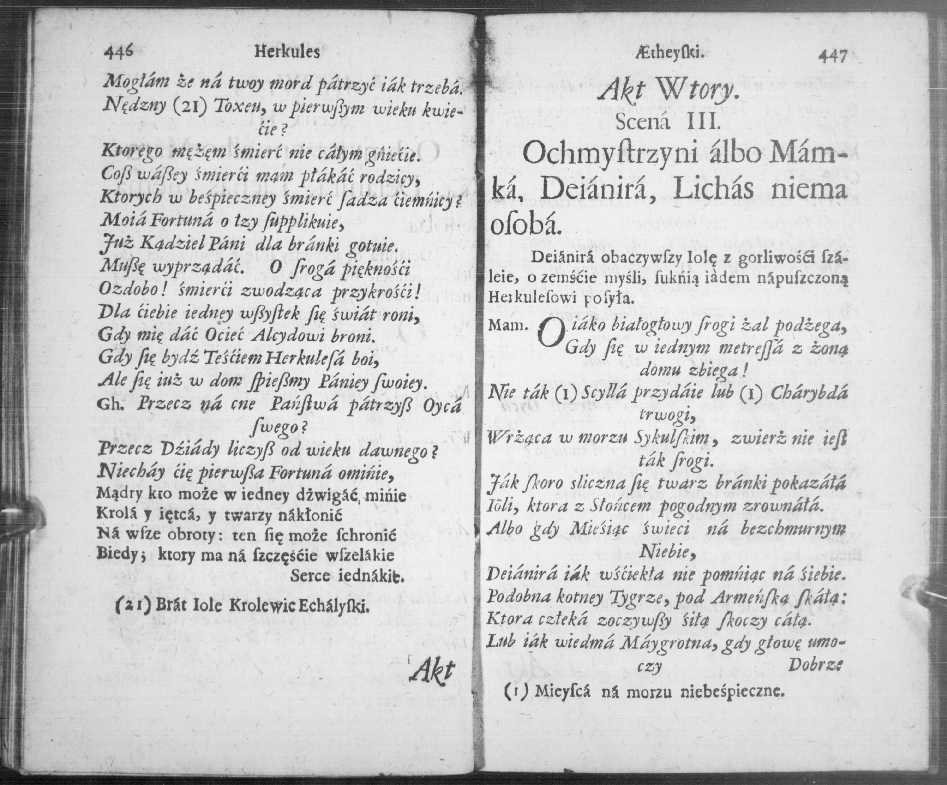 446 Herkules
Mogłám że ná twoy mord pátrzyć iák trzebá.
Nędzny (21) Toxeu, w pierwßym wieku kwie-
ćie?
Ktorego mężęm śmierć nie cáłym gńiećie.
Coß wáßey śmierći mąm płákáć rodzicy,
Ktorych w beśpieczney śmierć ſadza ćiemńicy?
Moiá Fortuná o łzy ſupplikuie,
Już Kądziel Páni dla bránki gotuie.
Mußę wyprządáć. O ſrogá pięknośći
Ozdobo! śmierći zwodząca przykrośći!
Dla ćiebie iedney wßyſtek ſię świát roni,
Gdy mię dáć Oćieć Alcydowi broni.
Gdy ſię bydź Teśćiem Herkuleſá boi,
Ale ſię iuż w dom ſpießmy Pániey ſwoiey.
Gh. Przecz ná cne Páńſtwá pátrzyß Oycá
ſwego?
Przecz Dźiády liczyß od wieku dawnego?
Niecháy ćię pierwßa Fortuná omińie,
Mądry kto może w iedney dźwigáć, mińie
Krolá y iętcá, y twarzy nákłonić
Ná wſze obroty: ten ſię może ſchronić
Biedy; ktory ma ná ſzczęśćie wſzelákie
Serce iednákie.
(21) Brát Iole Krolewic Echályſki.
Akt
Ætheyſki. 447
Akt Wtory.
Scená III.
Ochmyſtrzyni álbo Mám-
ká, Deiánirá, Lichás niema
oſobá.
Deiánirá obaczywſzy Iolę z gorliwośći ſzá-
leie, o zemśćie myśli, ſukńią iádem nápuſzczoną
Herkuleſowi poſyła.
Mam. O iáko białogłowy ſrogi żal podżega,
Gdy ſię w iednym metreſſá z żoną
domu zbiega!
Nie ták (1) Scyllá przydáie lub (1) Chárybdá
trwogi,
Wrżąca w morzu Sykulſkim, zwierż nie ieſt
ták ſrogi.
Ják ſkoro śliczna ſię twarz bránki pokazáłá
Ióli, ktora z Słońcem pogodnym zrownáłá.
Albo gdy Mieśiąc świeci ná bezchmurnym
Niebie,
Deiánirá iák wśćiekła nie pomńiąc ná śiebie.
Podobna kotney Tygrze, pod Armeńſką ſkáłą:
Ktora człeká zoczywßy śiłą ſkoczy cáłą.
Lub iák wiedmá Máygrotna, gdy głowę umo-
czy Dobrze
(1) Mieyſcá ná morzu niebeśpieczne.